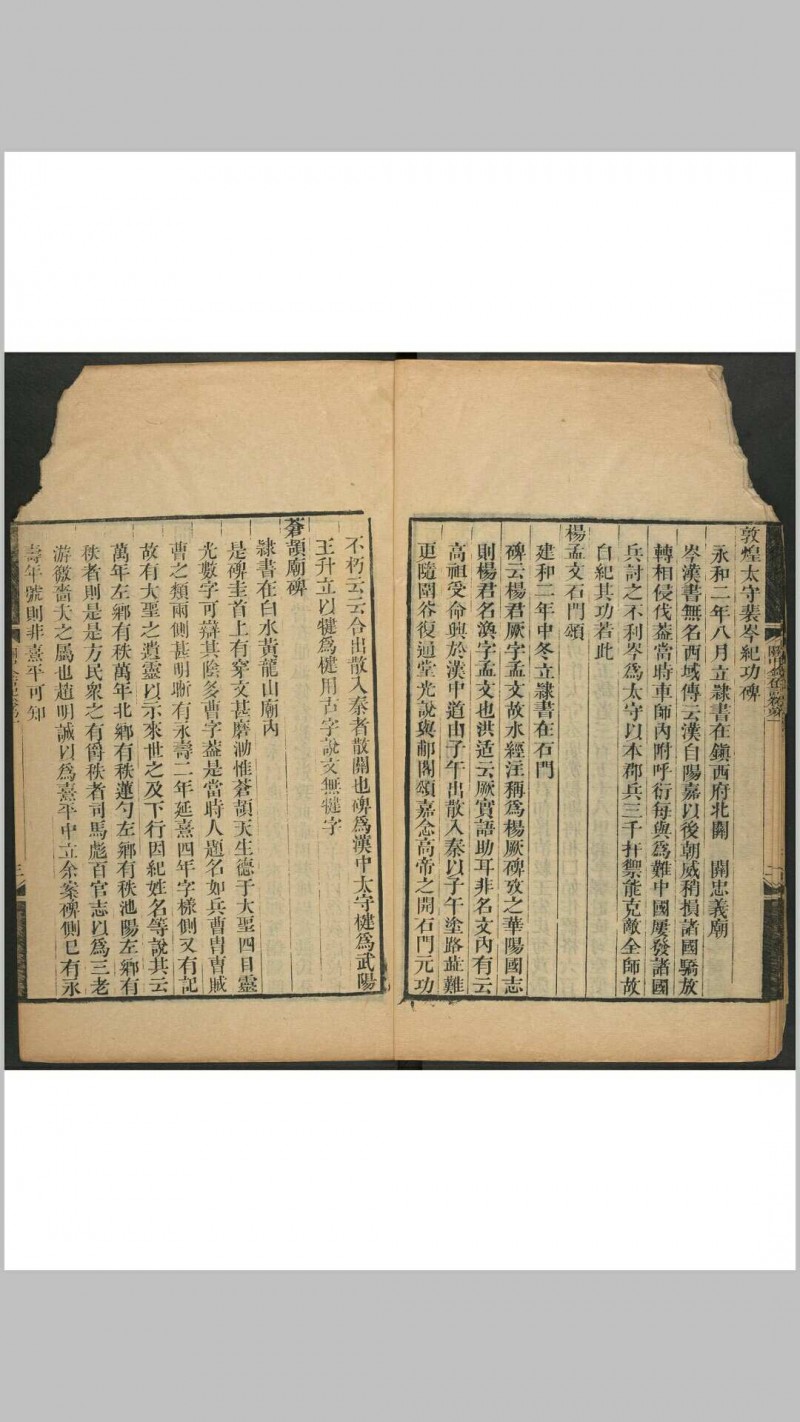 敦煌太守裴岑紀功碑
永和二年八月立隷書在鎮西府北關　關忠義廟
岑漢書無名西域傳云漢自陽嘉以後朝威稍損諸國驕放
轉相侵伐葢當時車師內附呼衍每與爲難中國屢發諸國
兵討之不利岑爲太守以本郡兵三千扞禦能克敵全師故
自紀其功若此
楊孟文石門頌
建和二年中冬立隷書在石門
碑云楊君厥字孟文故水經注稱爲楊厥碑攷之華陽國志
則楊君名渙字孟文也洪适云厥實語助耳非名文內有云
高祖受命興於漢中道由子午出散入秦以子午塗路歮難
更隨圍谷復通堂光說與郙閣頌嘉念高帝之開石門元功
不朽云云合出散入秦者散關也碑爲漢中太守楗爲武陽
王升立以犍爲楗用古字說文無犍字
蒼頡廟碑
隷書在白水黃龍山廟內
是碑圭首上有穿文甚磨泐惟蒼頡天生德于大聖四目靈
光數字可辯其陰多曹字葢是當時人題名如兵曹曹賊
曹之類兩側甚明晰有永壽二年延熹四年字樣側又有記
故有大聖之遺靈以示來世之及下行因紀姓名等說其云
萬年左鄉有秩萬年北鄉有秩蓮勺左鄉有秩池陽左鄉有
秩者則是是方民衆之有爵秩者司馬彪百官志以爲三老
游徼嗇夫之屬也趙明誠以爲熹平中立余案碑側已有永
壽年號則非熹平可知